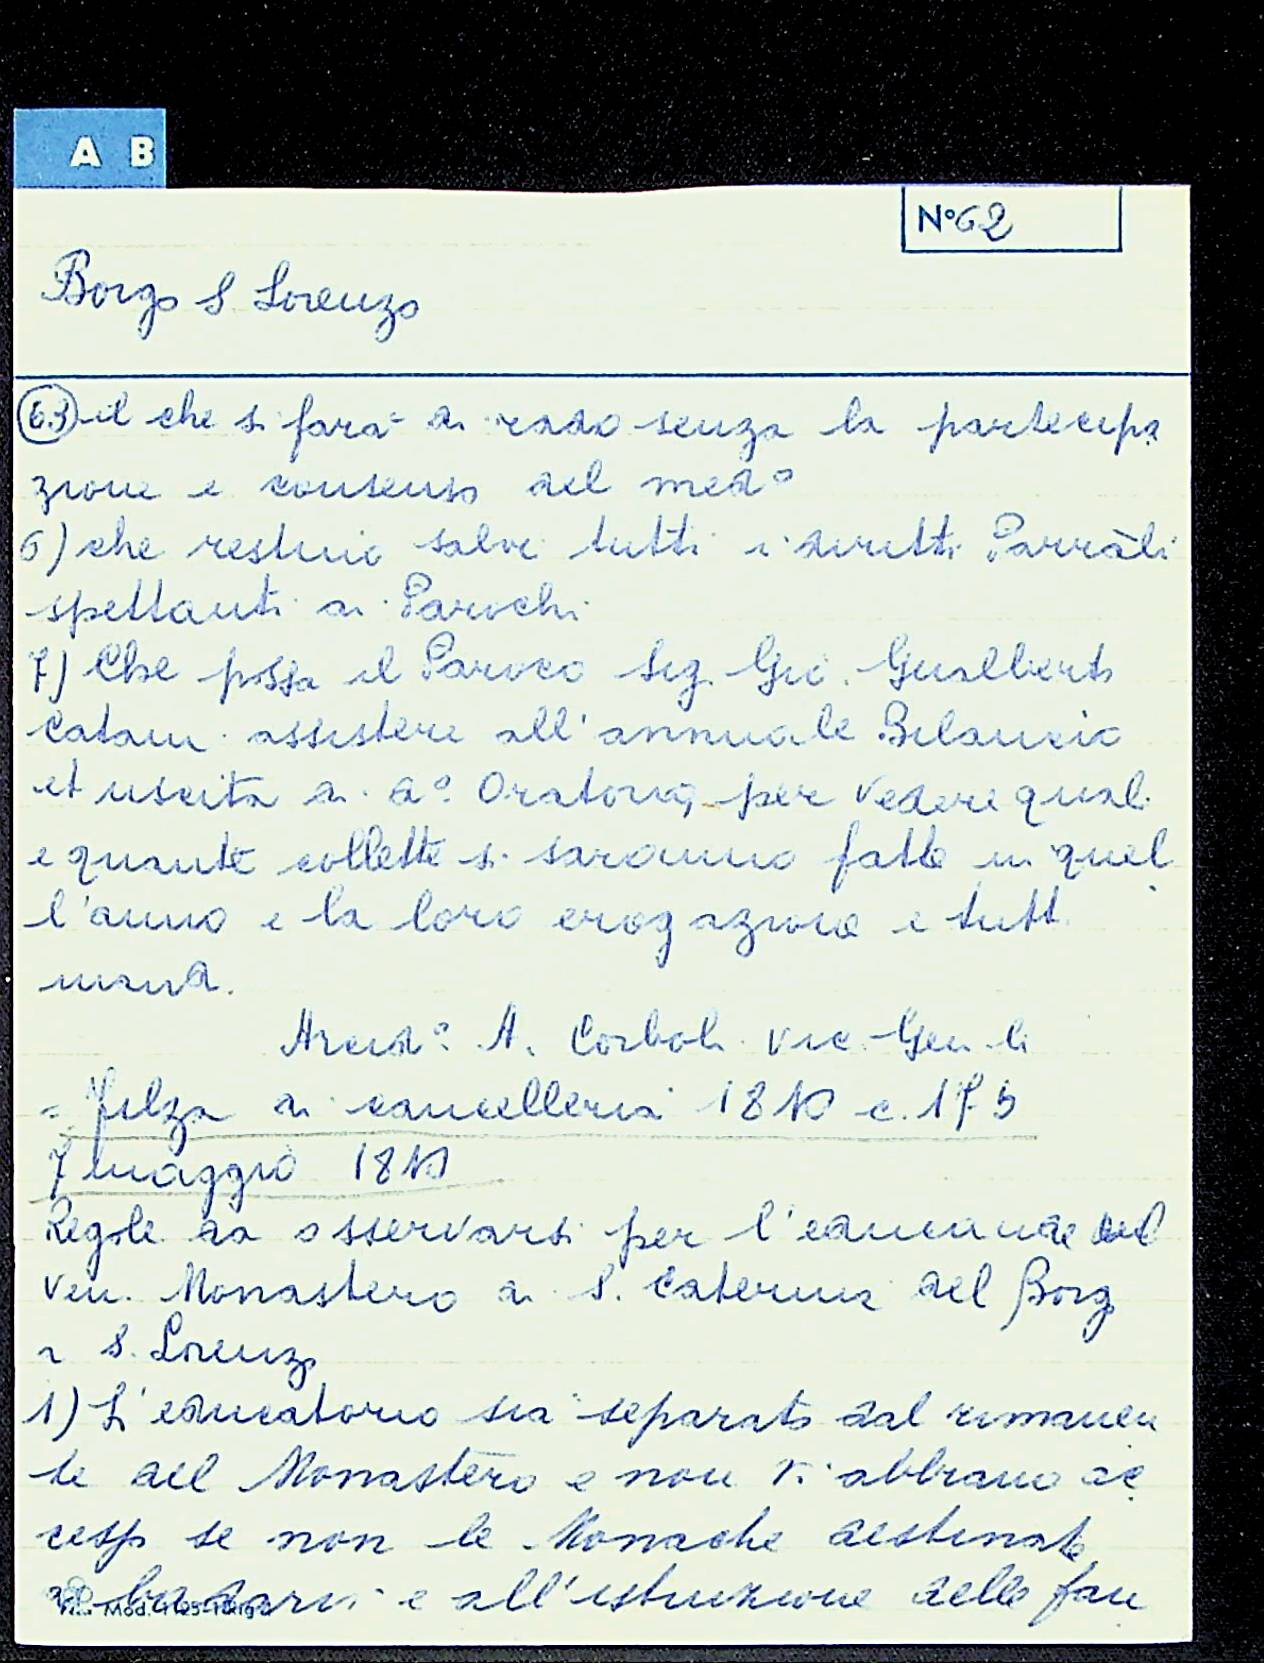 A B
N° 62
Borgo S. Lorenzo
63 il che si farà di rado senza la partecipa
zione e consenso del med°
6) che restino salvi tutti i diritti Parrali
spettanti ai Parochi
7) Che possa il Paroco Sig. Gio. Gualberto
Catani assistere all'annuale Bilancio
et uscita di d° Oratorio, per vedere quali
e quante collette si saranno fatte in quel
l'anno e la loro erogazione e tutt
Arcid° A. Corboli Vic. Gen.
= Filza di cancelleria 1810 c. 175
7 maggio 1810
Regole da osservarsi per l'educande del
Ven. Monastero di S. Caterina del Borgo
a S. Lorenzo
1) L'educatorio sia separato dal rimanen
te del Monastero e non vi abbiano ac
cesso se non le Monache destinate
a badarvi e all'istruzione delle fan
Mod.